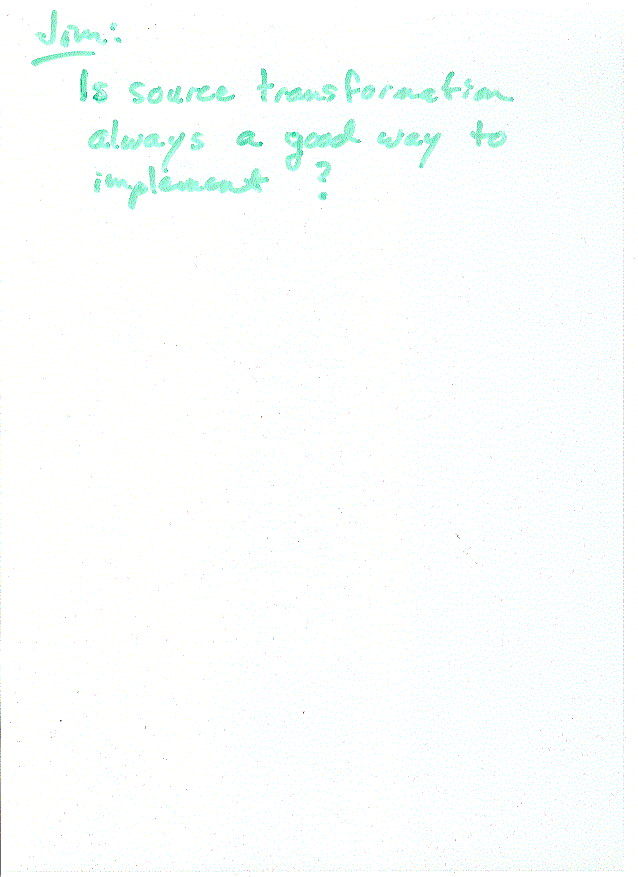 Jim:
Is source transformation
always a good way to
implement ?